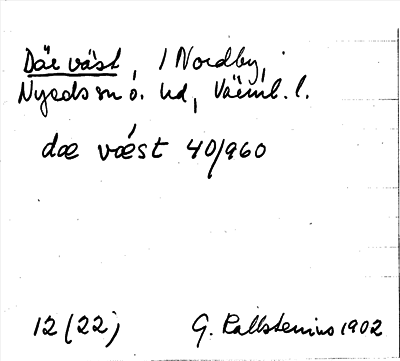 Där väst, 1 Nordby,
Nyeds sn o. hd, Värml. l.
dæ vǽst 40/960
12 (22) G. Kallstenius 1902